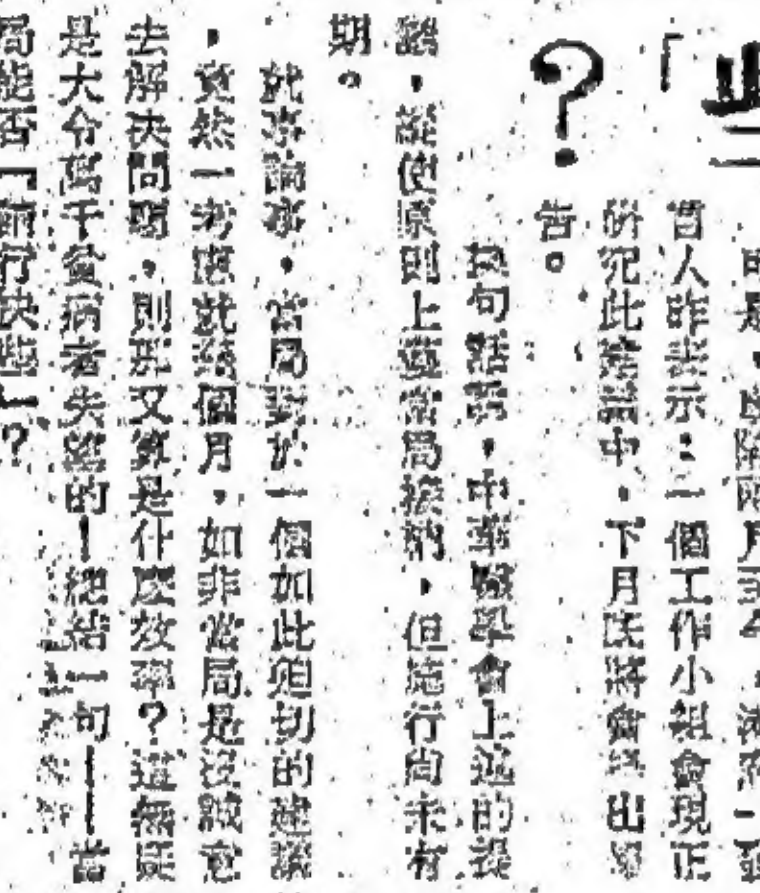 些
「
？
言人昨表示：一個工作小組會現正
研究此建議中，下月底將會提出報
告。
換句話說，中華醫學會上述的提
議，縱使原則上蒙當局接納，但施行尚未有
期。
就事論事，當局對於一個如此迫切的建議
，竟然一考慮就幾個月，如非當局是沒誠意
去解決問題，則那又算是什麼效率？這無疑
是大令萬千貧病者失望的！總結一句——當
局能否「前行快些」？